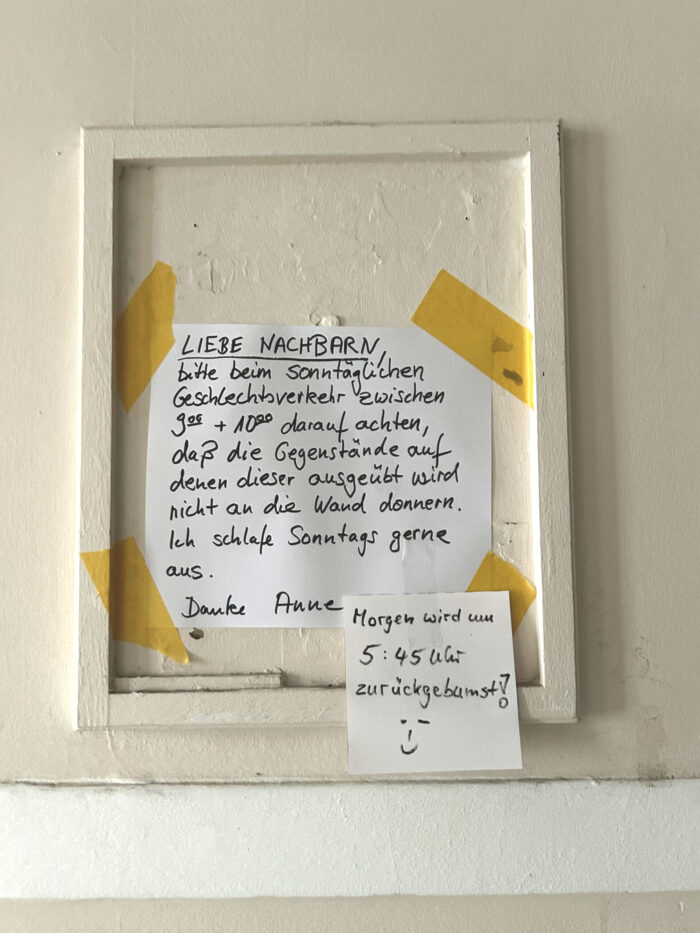 LIEBE NACHBARN,
bitte beim sonntäglichen
Geschlechtsverkehr zwischen
9⁰⁰ + 10⁰⁰ darauf achten,
daß die Gegenstände auf
denen dieser ausgeübt wird
nicht an die Wand donnern.
Ich schlafe Sonntags gerne
aus.
Danke Anne
Morgen wird um
5:45 Uhr
zurückgebumst!